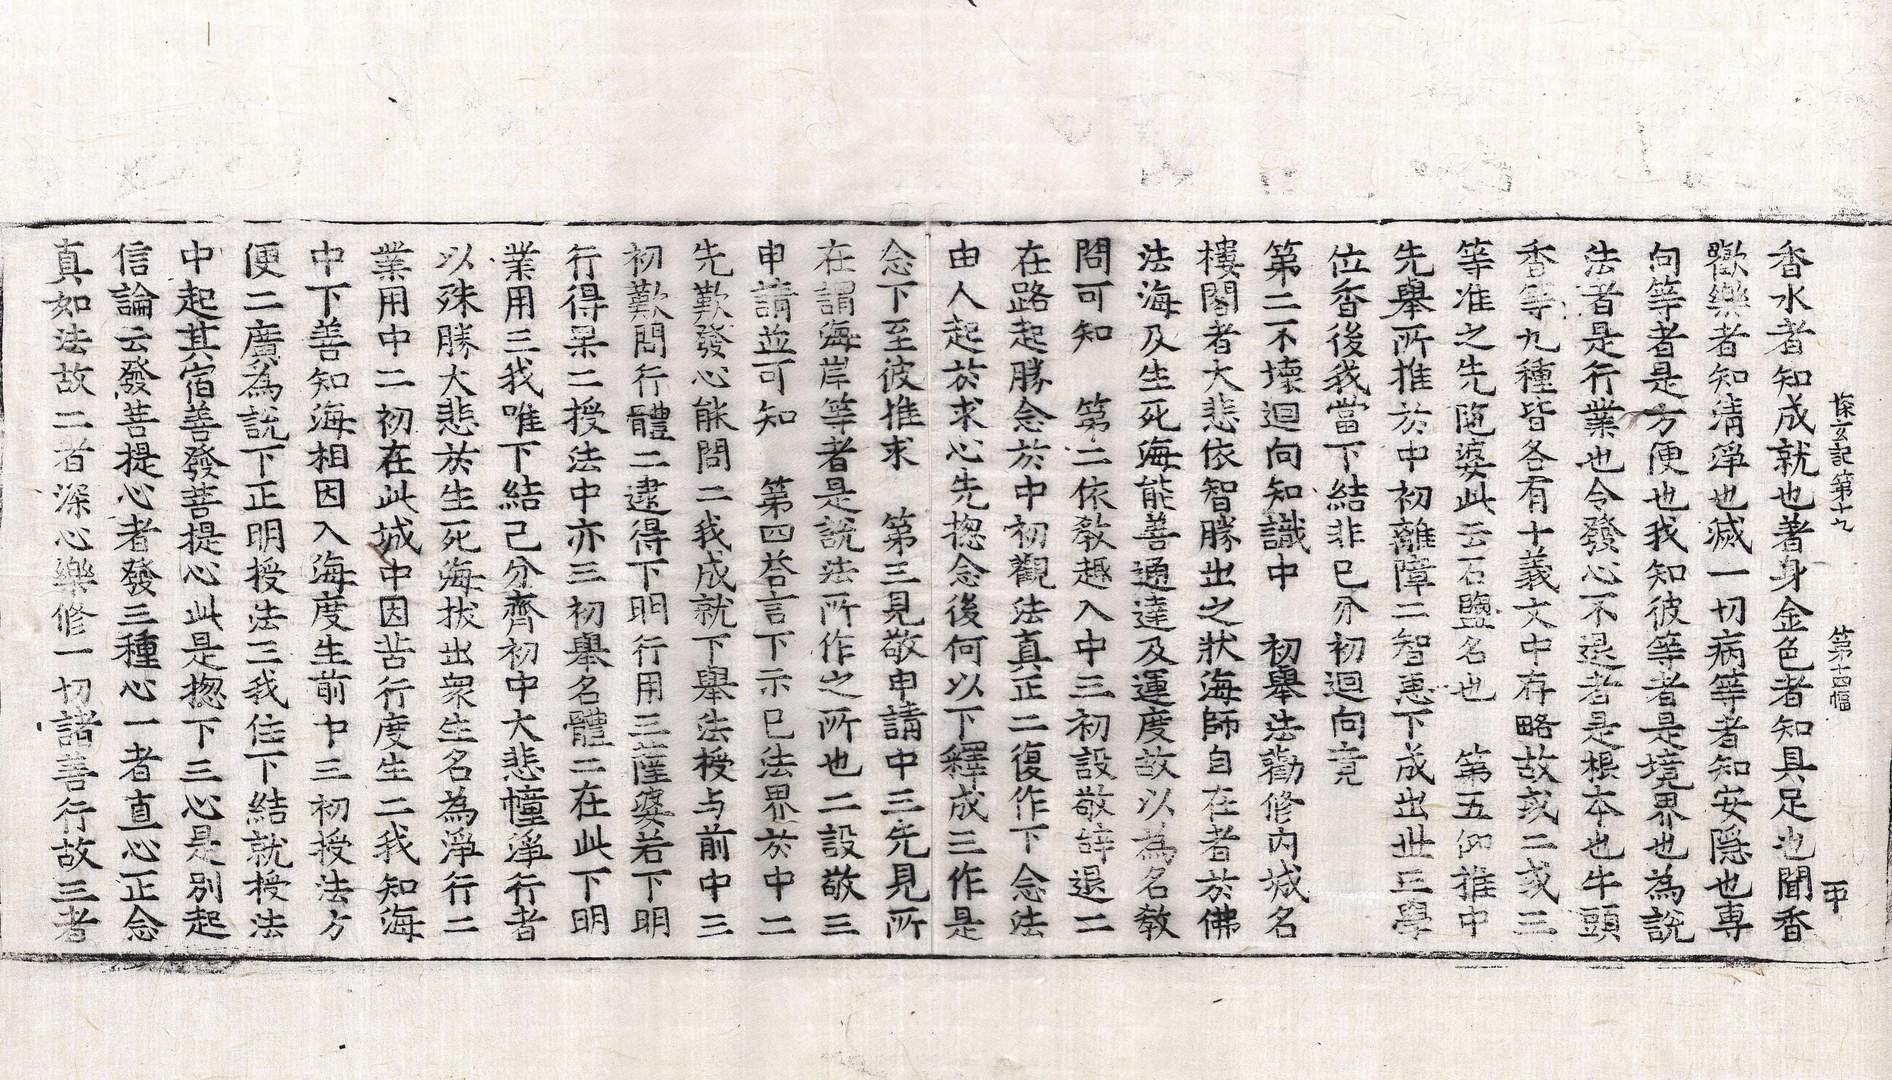 探玄記第十九　第十四幅　甲
香水者知成就也著身金色者知具足也聞香
歡樂者知清淨也滅一切病等者知安隱也專
向等者是方便也我知彼等者是境界也為說
法者是行業也令發心不退者是根本也牛頭
香等九種皆各有十義文中存略故或二或三
等准之先陁婆此云石鹽名也　第五仰推中
先舉所推於中初離障二智惠下成出世三學
位香後我當下結非己分初迴向竟
第二不壞迴向知識中　初舉法勸修內城名
樓閣者大悲依智勝出之狀海師自在者於佛
法海及生死海能善通達及運度故以為名教
問可知　第二依教趣入中三初設敬辞退二
在路起勝念於中初觀法真正二復作下念法
由人起於求心先揔念後何以下釋成三作是
念下至彼推求　第三見敬申請中三先見所
在謂海岸等者是說法所作之所也二設敬三
申請並可知　第四答言下示已法界於中二
先歎發心能問二我成就下舉法授与前中三
初歎問行體二逮得下明行用三薩婆若下明
行得果二授法中亦三初舉名體二在此下明
業用三我唯下結己分齊初中大悲幢淨行者
以殊勝大悲於生死海拔出衆生名為淨行二
業用中二初在此城中因苦行度生二我知海
中下善知海相因入海度生前中三初授法方
便二廣為說下正明授法三我住下結就授法
中起其宿善發菩提心此是揔下三心是別起
信論云發菩提心者發三種心一者直心正念
真如法故二者深心樂修一切諸善行故三者